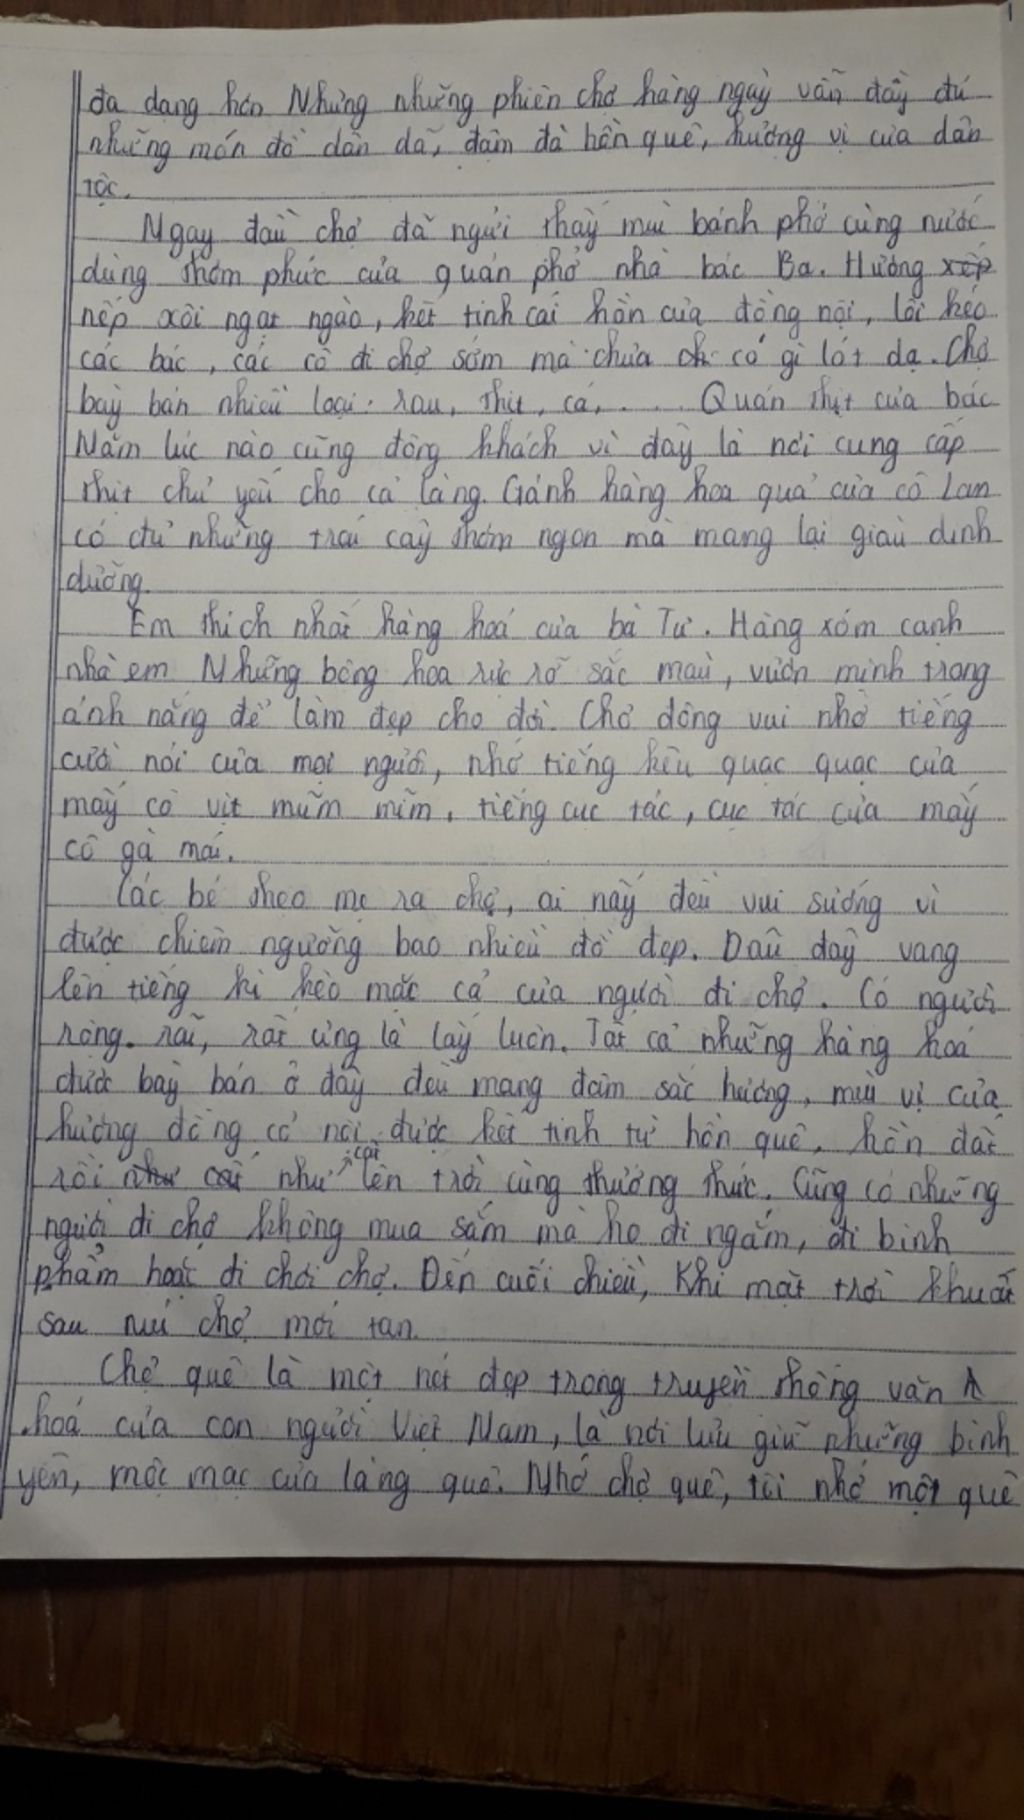 đa dạng hơn Nhưng những phiên chợ hàng ngày vẫn đầy đủ
những món đồ dân dã, đậm đà hồn quê, hương vị của dân
tộc.
Ngay đầu chợ đã ngửi thấy mùi bánh phở cùng nước
dùng thơm phức của quán phở nhà bác Ba. Hương xếp
nếp xôi ngạt ngào, kết tinh cái hồn của đồng nội, lôi kéo
các bác, các cô đi chợ sớm mà chưa có gì lót dạ. Chợ
bày bán nhiều loại: rau, thịt, cá,.... Quán thịt của bác
Năm lúc nào cũng đông khách vì đây là nơi cung cấp
thịt chủ yếu cho cả làng. Gánh hàng hoa quả của cô Lan
có đủ những trái cây thơm ngon mà mang lại giàu dinh
dưỡng.
Em thích nhất hàng hoá của bà Tư. Hàng xóm cạnh
nhà em Những bông hoa rực rỡ sắc màu, vươn mình trong
ánh nắng để làm đẹp cho đời. Chợ đông vui nhờ tiếng
cười nói của mọi người, nhờ tiếng kêu quạc quạc của
mấy cô vịt mũm mĩm, tiếng cục tác, cục tác của mấy
cô gà mái.
Các bé theo mẹ ra chợ, ai nấy đều vui sướng vì
được chiêm ngưỡng bao nhiêu đồ đẹp. Đâu đấy vang
lên tiếng kì kèo mặc cả của người đi chợ. Có người
rộng rãi, rất ưng là lấy luôn. Tất cả những hàng hoá
được bày bán ở đây đều mang đậm sắc hương, mùi vị của
hương đồng cỏ nội được kết tinh từ hồn quê, hồn đất
rồi như cất như cất lên trời cùng thưởng thức. Cũng có những
người đi chợ không mua sắm mà họ đi ngắm, đi bình
phẩm hoặc đi chơi chợ. Đến cuối chiều, Khi mặt trời khuất
sau núi chợ mới tan.
Chợ quê là một nét đẹp trong truyền thống văn
hoá của con người Việt Nam, là nơi lưu giữ những bình
yên, mộc mạc của làng quê. Nhớ chợ quê, tôi nhớ một quê